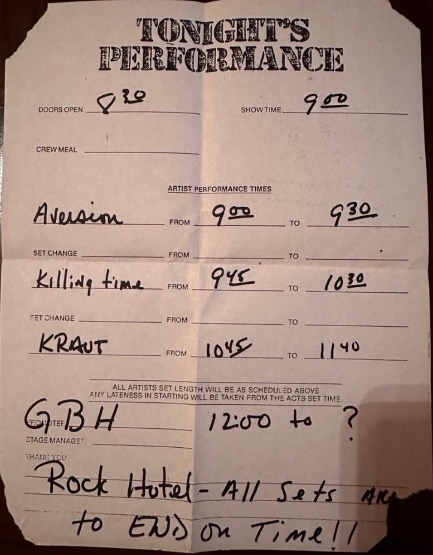 TONIGHT'S
PERFORMANCE
DOORS OPEN 8 30 SHOW TIME 9 00
CREW MEAL
ARTIST PERFORMANCE TIMES
Aversion FROM 9 00 TO 9 30
SET CHANGE FROM TO
Killing time FROM 9 45 TO 10 30
SET CHANGE FROM TO
KRAUT FROM 10 45 TO 11 40
ALL ARTISTS SET LENGTH WILL BE AS SCHEDULED ABOVE
ANY LATENESS IN STARTING WILL BE TAKEN FROM THE ACTS SET TIME
GBH 12:00 to ?
PROMOTER
STAGE MANAGER
THANK YOU
Rock Hotel - All Sets ARE
to END on Time!!